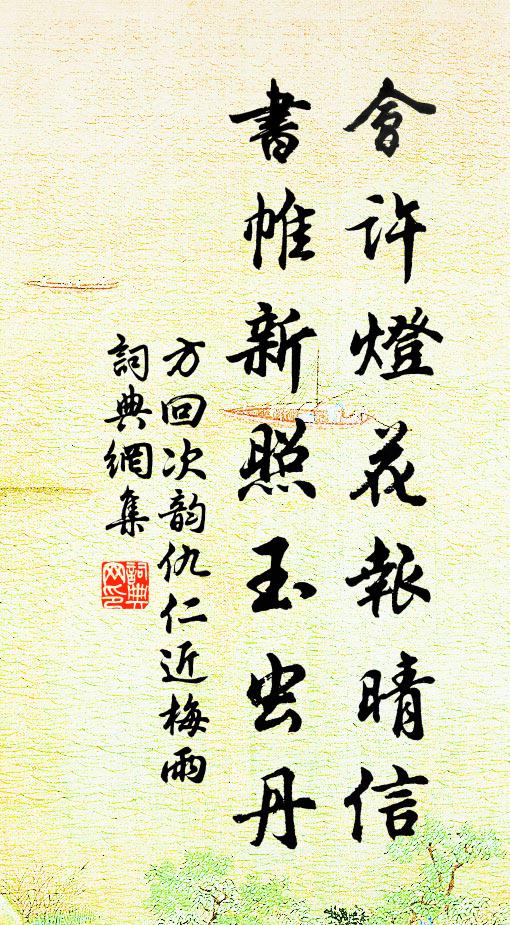 會許燈花報晴信
書帷新照玉虫丹
方回次韵仇仁近梅雨
詞典網集
詞典網印